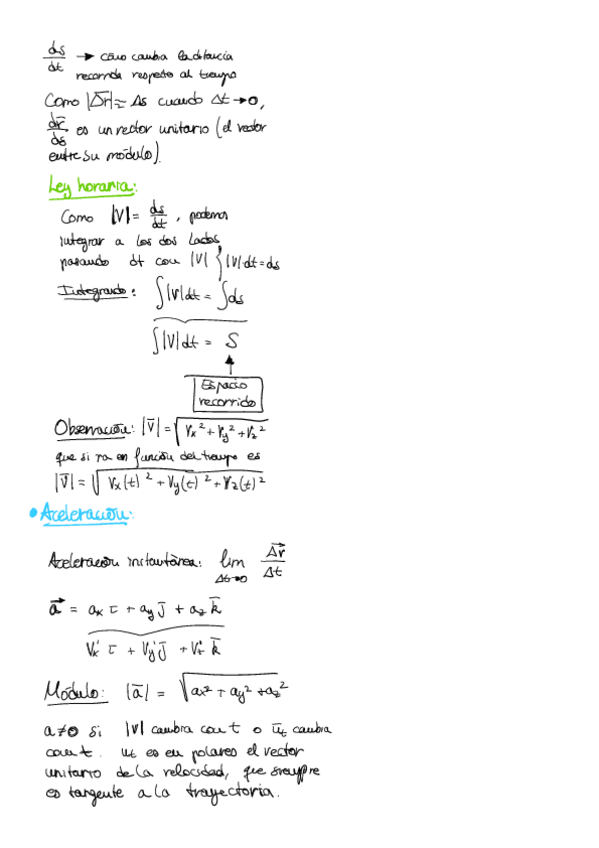 ds/dt → Cómo cambia la distancia
recorrida respecto al tiempo
Como |Δr̄| ≈ Δs cuando Δt→0,
dr̄/ds es un vector unitario (el vector
entre su módulo).
Ley horaria:
Como |V| = ds/dt, podemos
integrar a los dos lados
pasando dt con |V| { |V|dt = ds
Integrando: ∫|V|dt = ∫ds
∫|V|dt = S
Espacio
recorrido
Observación: |V̄| = √(Vx² + Vy² + Vz²)
que si va en función del tiempo es
|V̄| = √(Vx(t)² + Vy(t)² + Vz(t)²)
• Aceleración:
Aceleración instantánea: lim Δt→0 Δr⃗/Δt
a⃗ = ax ī + ay j̄ + az k̄
Vx' ī + Vy' j̄ + Vz' k̄
Módulo: |ā| = √(ax² + ay² + az²)
a≠0 si |V| cambia con t o ūt cambia
con t. ut es en polares el vector
unitario de la velocidad, que siempre
es tangente a la trayectoria.